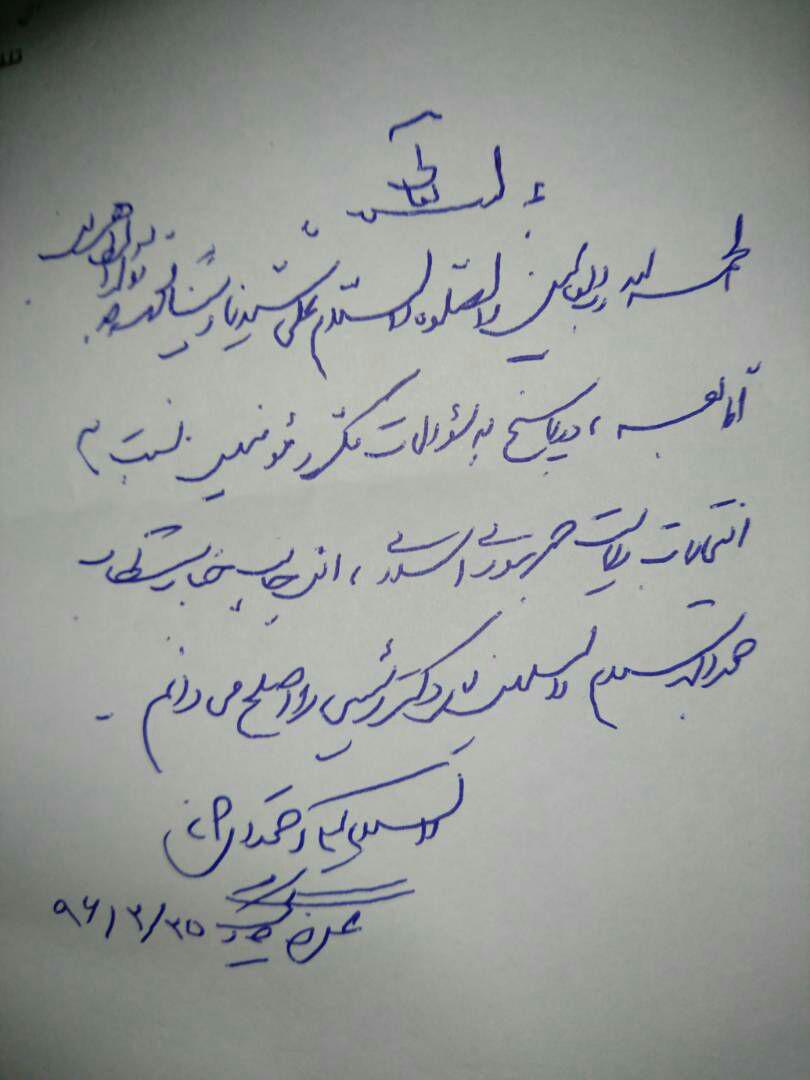 بسمه تعالی
الحمد لله رب العالمین و الصلوة و السلام علی سیدنا و نبینا محمد و
اما بعد ، در پاسخ به سؤالات مکرر مؤمنین نسبت به
انتخابات ریاست جمهوری اسلامی ، اینجانب جناب مستطاب
حجة الاسلام و المسلمین دکتر رئیسی را اصلح می دانم .
والسلام علیکم و رحمة الله
۹۶/۲/۲۵